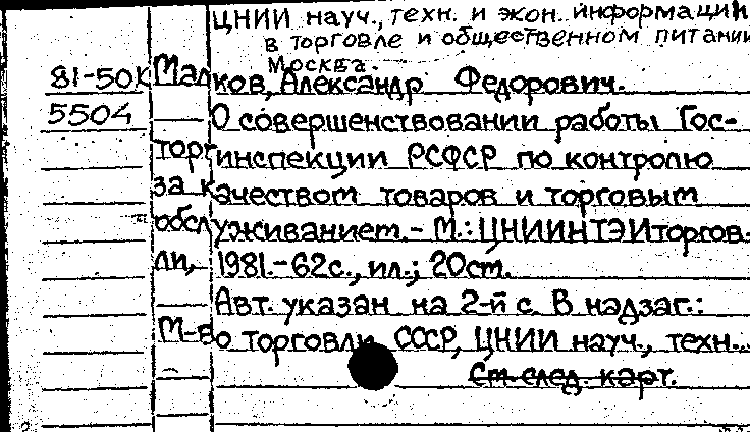 ЦНИИ науч., техн. и экон. информации
в торговле и общественном питании
Москва.
81-50К Малков, Александр Федорович.
5504 О совершенствовании работы Гос-
торгинспекции РСФСР по контролю
за качеством товаров и торговым
обслуживанием. - М.: ЦНИИНТЭИторгов-
ли, 1981. - 62с., ил.; 20см.
Авт. указан на 2-й с. В надзаг.:
М-во торговли СССР, ЦНИИ науч., техн...
См. след. карт.